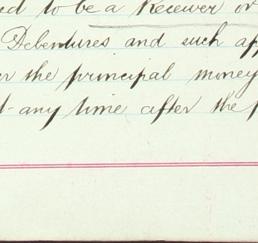 ed to be a Receiver or
Debentures and such ap
er the principal money
t any time after the p